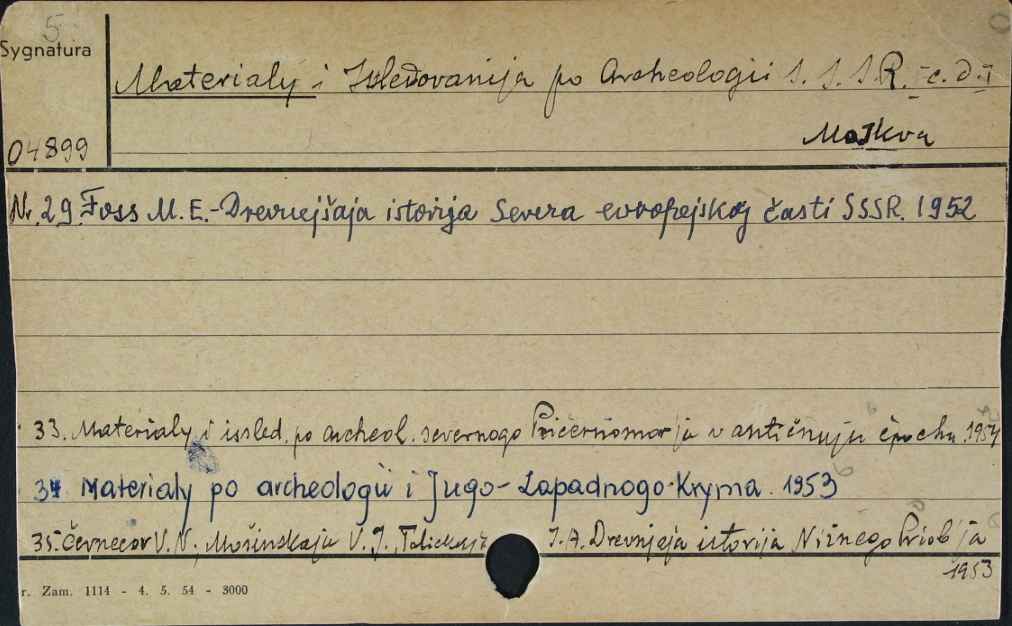 5
Sygnatura
Materialy i Issledovanija po Archeologii S.S.S.R. - c.d. I
Moskva
04899
Nr. 29. Foss M.E. - Drevnejšaja istorija Severa evropejskoj časti SSSR. 1952
33. Materialy i issled. po archeol. severnogo Pričernomor'ja v antičnuju èpochu. 1954
34 Materialy po archeologii i Jugo-Zapadnogo Kryma. 1953
35. Černecov V.N., Mošinskaja V.I., Talickaja I.A. Drevnjeja istorija Nižnego Priob'ja
1953
r. Zam. 1114 - 4. 5. 54 - 3000